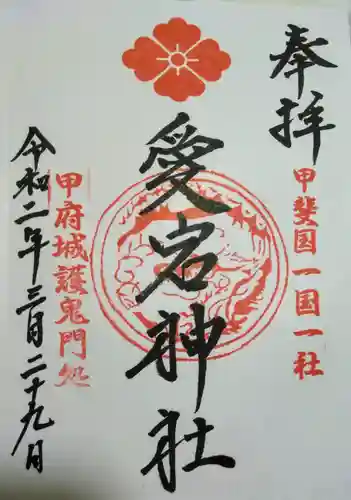 奉拝
甲斐国一国一社
愛宕神社
甲府城護鬼門処
令和二年三月二十九日